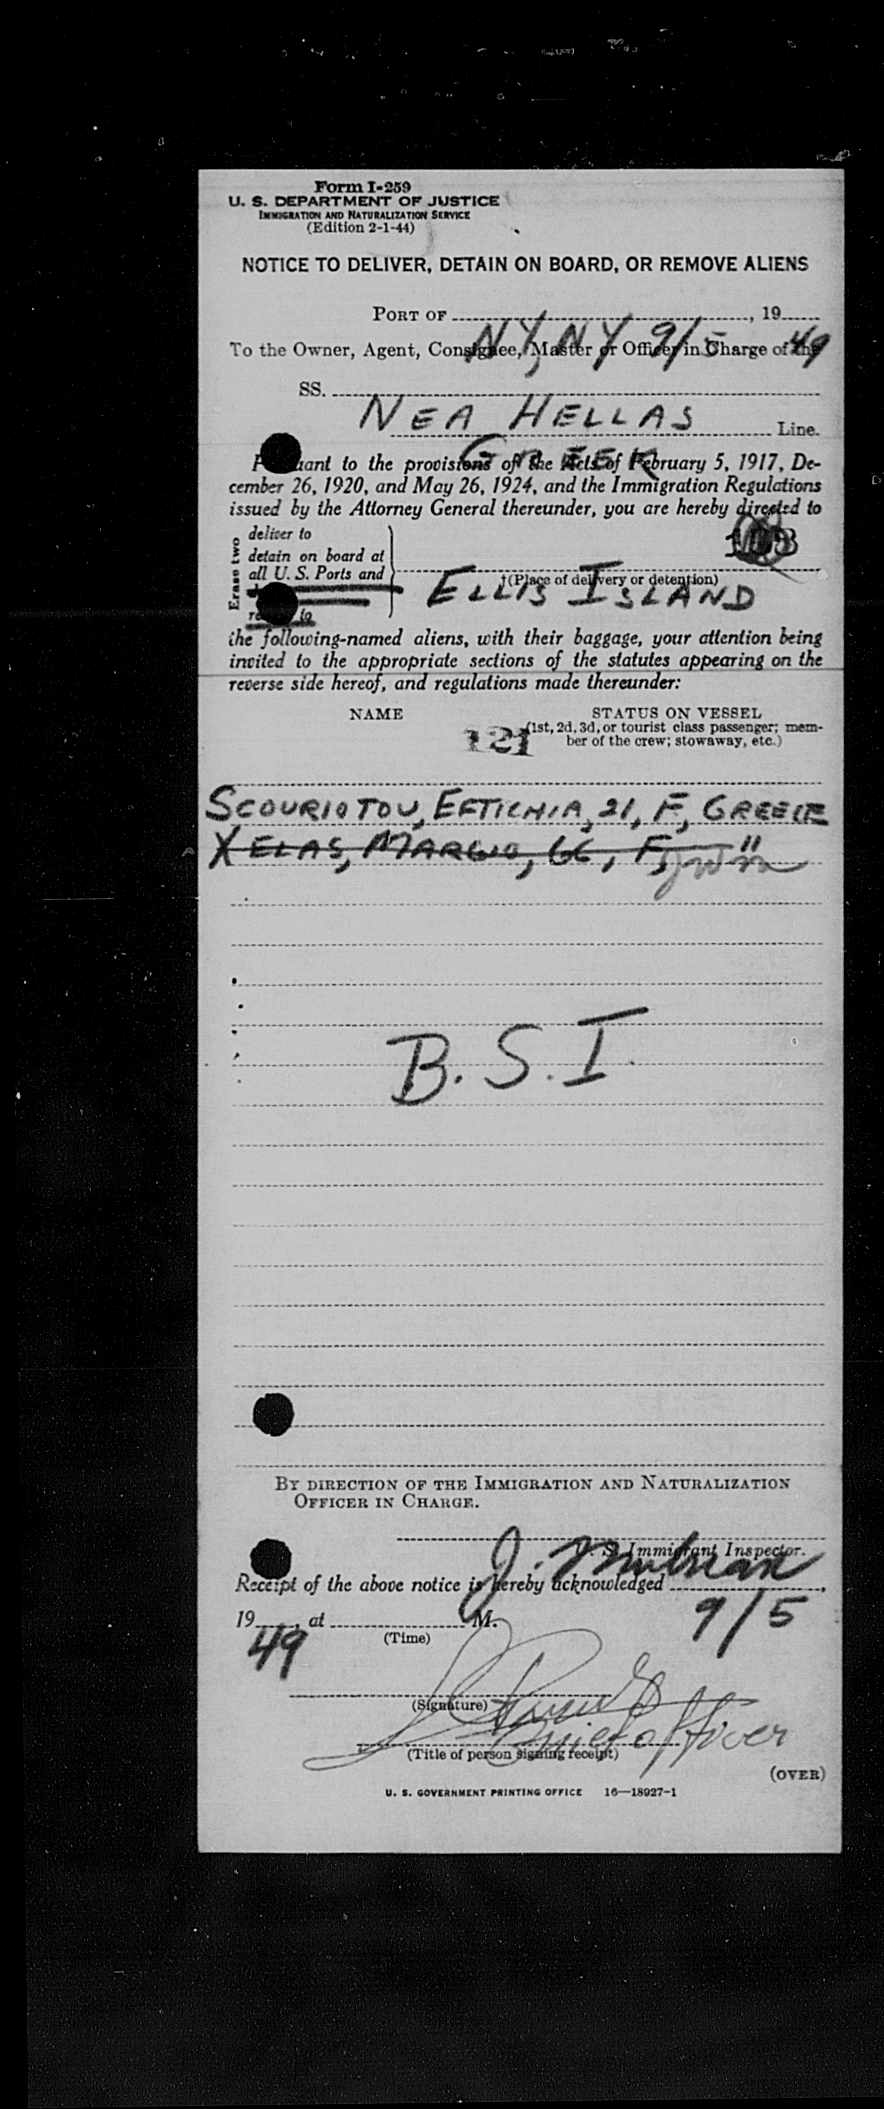 Form I-259
U. S. DEPARTMENT OF JUSTICE
IMMIGRATION AND NATURALIZATION SERVICE
(Edition 2-1-44)
NOTICE TO DELIVER, DETAIN ON BOARD, OR REMOVE ALIENS
PORT OF NY, NY 9/5, 1949
To the Owner, Agent, Consignee, Master or Officer in Charge of the
SS. NEA HELLAS
GREEK Line.
Pursuant to the provisions of the Acts of February 5, 1917, De-
cember 26, 1920, and May 26, 1924, and the Immigration Regulations
issued by the Attorney General thereunder, you are hereby directed to
Erase two
deliver to
detain on board at
all U. S. Ports and
to
ELLIS ISLAND
†(Place of delivery or detention)
the following-named aliens, with their baggage, your attention being
invited to the appropriate sections of the statutes appearing on the
reverse side hereof, and regulations made thereunder:
NAME
STATUS ON VESSEL
(1st, 2d, 3d, or tourist class passenger; mem-
ber of the crew; stowaway, etc.)
121
SCOURIOTOU, EFTICHIA, 21, F, GREECE
XELAS, F, "
B.S.I.
BY DIRECTION OF THE IMMIGRATION AND NATURALIZATION
OFFICER IN CHARGE.
U. S. Immigrant Inspector.
Receipt of the above notice is hereby acknowledged 9/5,
1949, at M.
(Time)
(Signature)
Chief officer
(Title of person signing receipt)
(OVER)
U. S. GOVERNMENT PRINTING OFFICE 16—18927-1